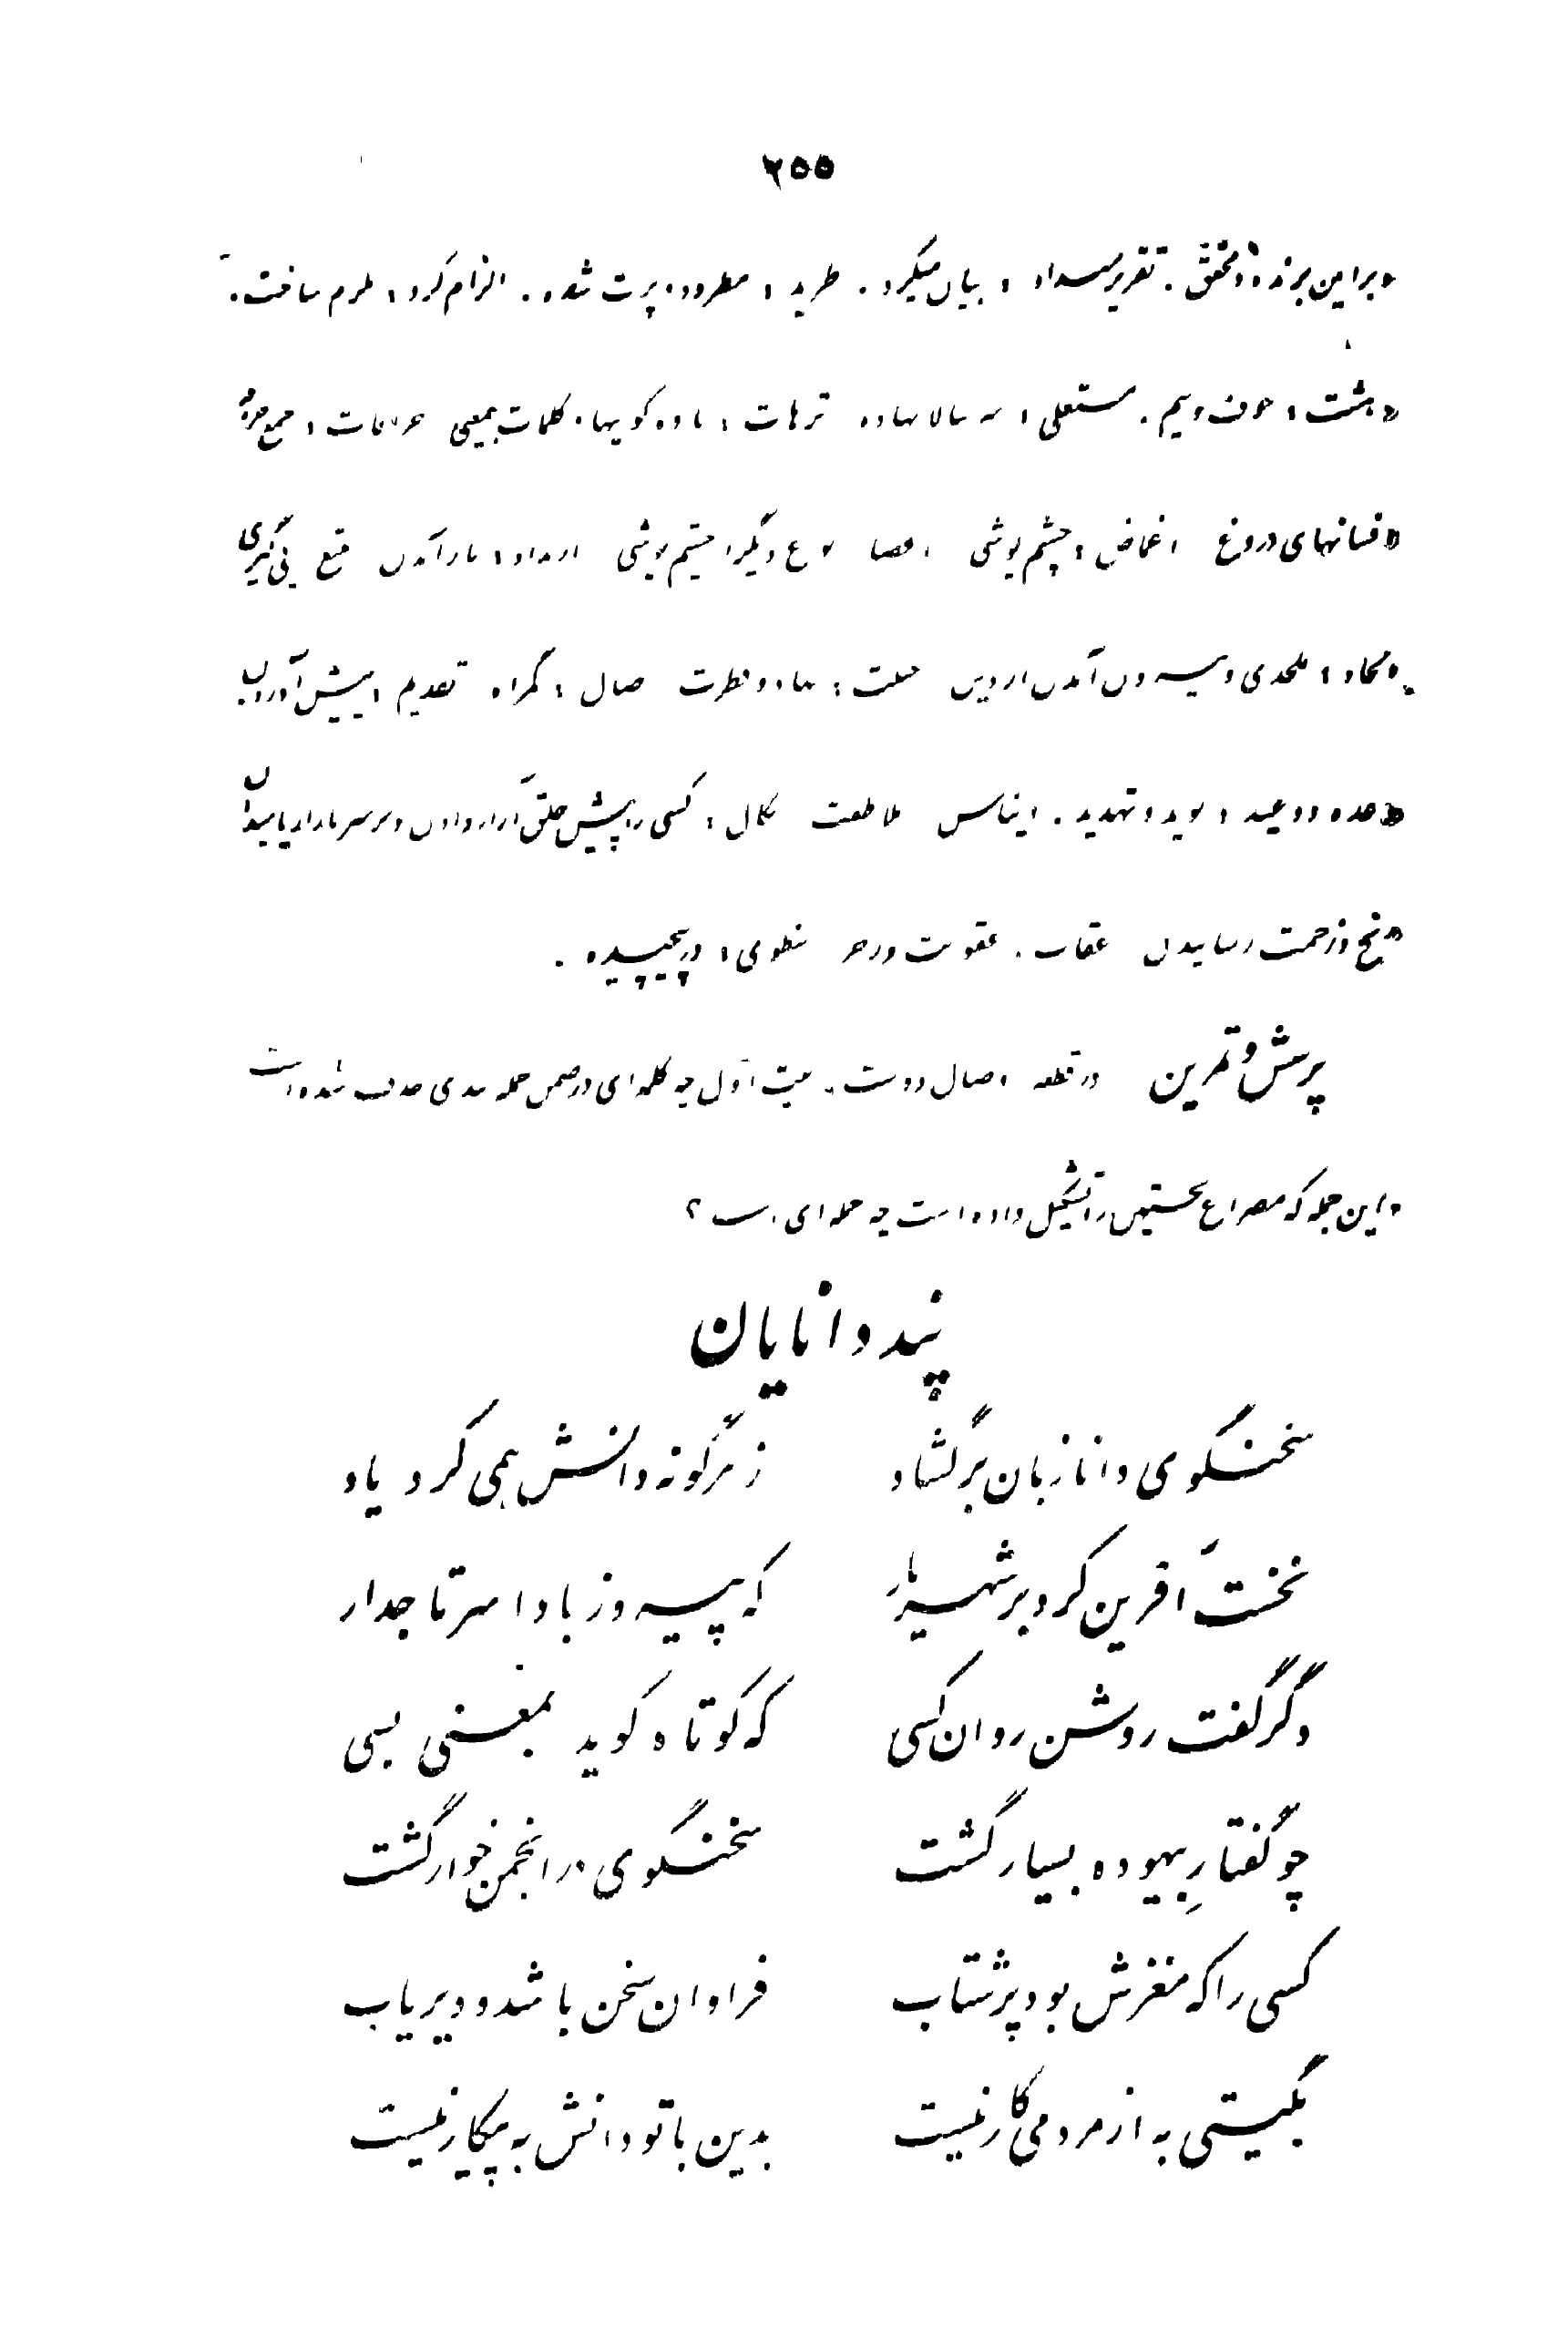 ۲۵۵
و براین برنده و محقق . تقریر میداد ، بیان میکرد . طرید ، مطرود و پرت شده . الزام کرد ، ملزم ساخت .
دهشت ، خوف و بیم . مستعلی ، ترهات ، یاوه گوییها ، کلمات بیمعنی خرافات ، جمع خرافه
و فسانهای دروغ اغماض ، چشم پوشی اغضا چشم پوشی ارتداد ، باز آمدن تتبع پی گیری
الحاد ، ملحدی و بیرون آمدن از دین جبلت ، نهاد و فطرت ضال ، گمراه تقدیم ، پیش آوردن
وعده و وعید ، نوید و تهدید . ایناس ملاطفت نکال ، کسی را پیش خلق آزار دادن
رنج و زحمت رسانیدن عقاب . عقوبت و زجر منطوی ، درپیچیده .
پرسش و تمرین در قطعه وصال دوست . بیت اول چه کلمه ای در ضمن جمله بندی حذف شده است
و این جمله که مصراع نخستین را تشکیل داده است چه جمله ای است ؟
پند دانایان
سخنگوی دانا زبان برگشاد ز هرگونه دانش همی کرد یاد
نخست آفرین کرد بر شهریار که پیروز بادا سر تاجدار
دگر گفت روشن روان کسی که کوتاه گوید بمعنی بسی
چو گفتارِ بیهوده بسیار گشت سخنگوی در انجمن خوار گشت
کسی را که مغزش بود پرشتاب فراوان سخن باشد و دیریاب
بگیتی به از مردمی کار نیست بدین با تو دانش به پیکار نیست